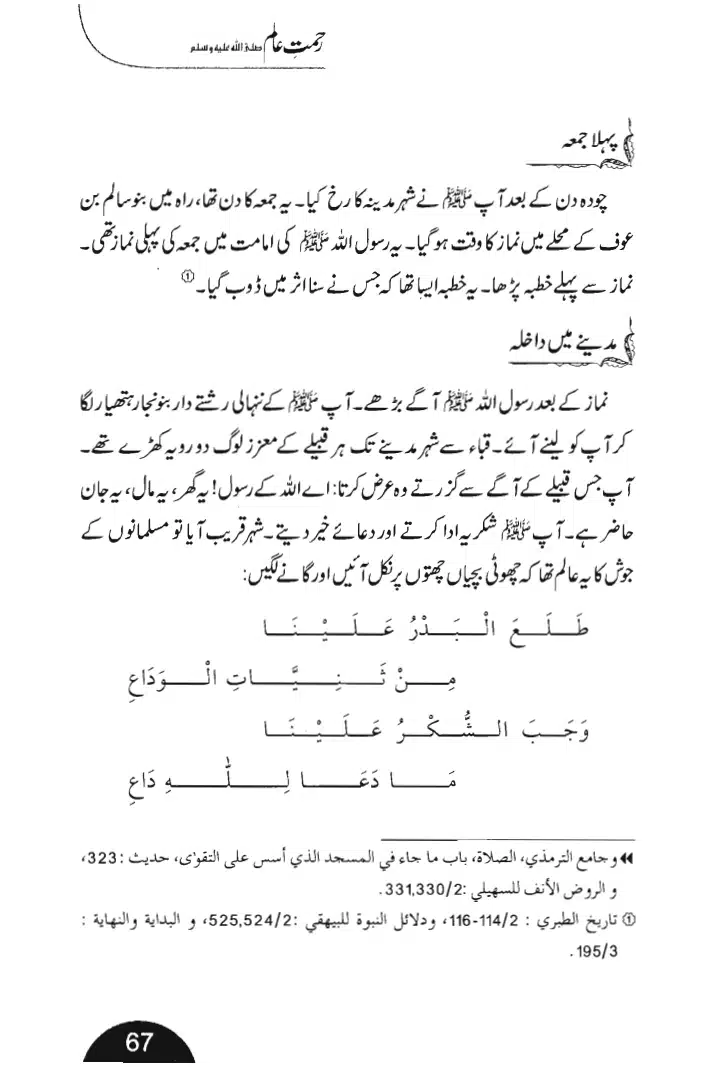 رحمتِ عالم صلی اللہ علیہ وسلم
پہلا جمعہ
چودہ دن کے بعد آپ ﷺ نے شہر مدینہ کا رخ کیا۔ یہ جمعہ کا دن تھا، راہ میں بنو سالم بن
عوف کے محلے میں نماز کا وقت ہو گیا۔ یہ رسول اللہ ﷺ کی امامت میں جمعہ کی پہلی نماز تھی۔
نماز سے پہلے خطبہ پڑھا۔ یہ خطبہ ایسا تھا کہ جس نے سنا اثر میں ڈوب گیا۔①
مدینے میں داخلہ
نماز کے بعد رسول اللہ ﷺ آگے بڑھے۔ آپ ﷺ کے ننہالی رشتے دار بنو نجار ہتھیار لگا
کر آپ کو لینے آئے۔ قباء سے شہر مدینے تک ہر قبیلے کے معزز لوگ دو رویہ کھڑے تھے۔
آپ جس قبیلے کے آگے سے گزرتے وہ عرض کرتا: اے اللہ کے رسول! یہ گھر، یہ مال، یہ جان
حاضر ہے۔ آپ ﷺ شکریہ ادا کرتے اور دعائے خیر دیتے۔ شہر قریب آیا تو مسلمانوں کے
جوش کا یہ عالم تھا کہ چھوٹی بچیاں چھتوں پر نکل آئیں اور گانے لگیں:
طَلَعَ الْبَدْرُ عَلَيْنَا
مِنْ ثَنِيَّاتِ الْوَدَاعِ
وَجَبَ الشُّكْرُ عَلَيْنَا
مَا دَعَا لِلّٰهِ دَاعٍ
◂◂ وجامع الترمذي، الصلاة، باب ما جاء في المسجد الذي أسس على التقوٰى، حديث : 323،
و الروض الأنف للسهيلي :331,330/2.
① تاريخ الطبري : 116-114/2، ودلائل النبوة للبيهقي :525,524/2، و البداية والنهاية :
195/3.
67